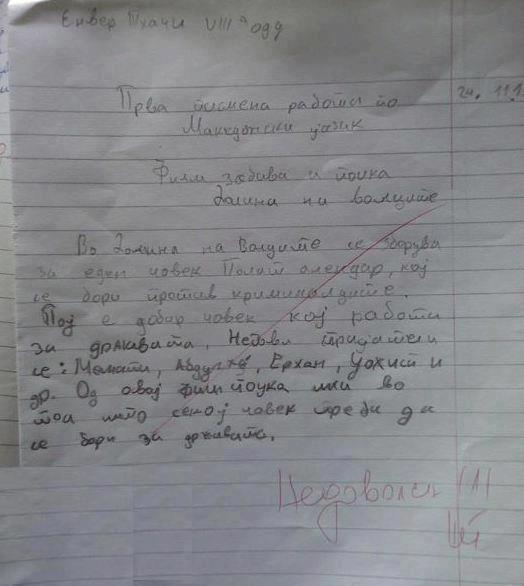 Енвер Тхачи VIII а одд
24. 11.
Прва писмена работа по
Македонски јазик
Филм забава и поука
Долина на волците
Во Долина на Волците се зборува
за еден човек Полат алемдар, кој
се бори против криминалците.
Тој е добар човек кој работи
за државата, Негови пријатели
се: Мемати, Абдулхеј, Ерхан, Џахит и
др. Од овај филм поука има во
тоа што секој човек треба да
се бори за државата.
Недоволен (1)